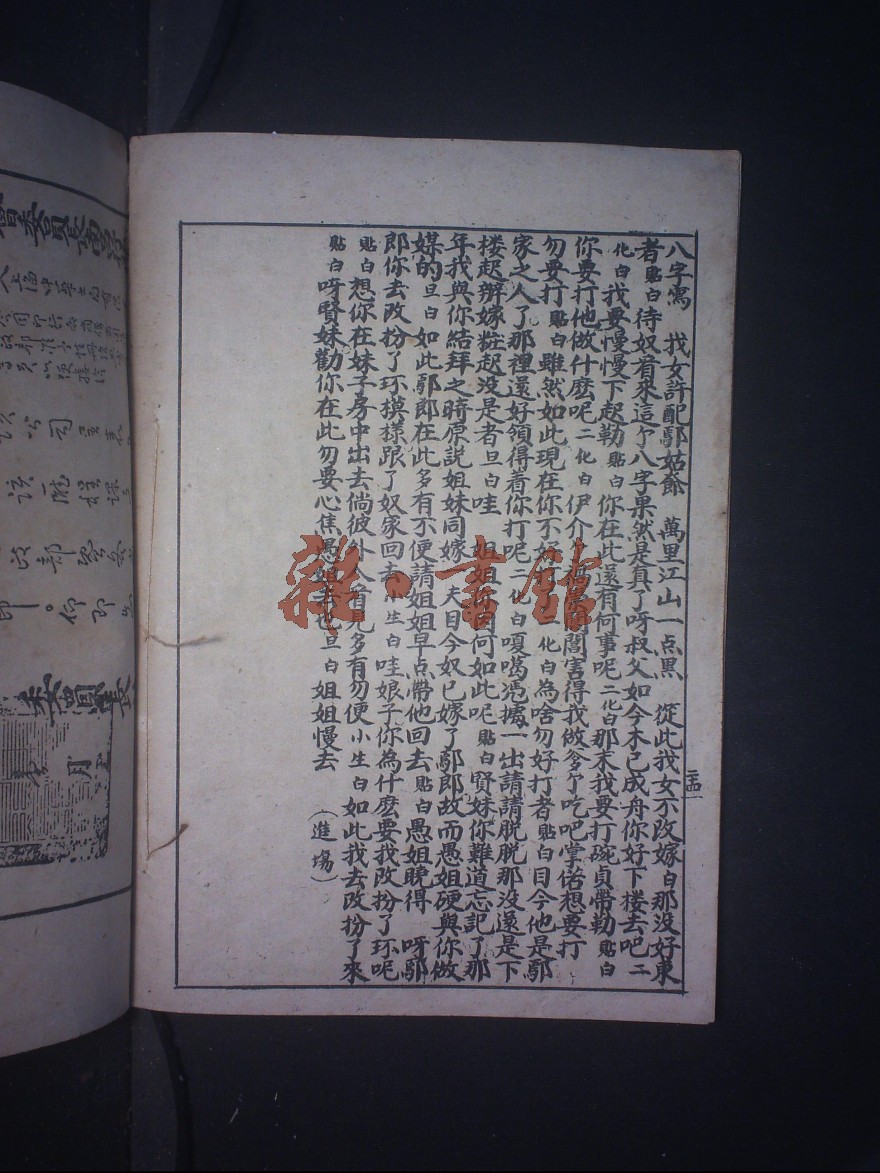 八字寫　找女許配鄢姑爺　萬里江山一点黑　從此我女不改嫁白那没好東
者貼白待奴看來這个八字果然是真了呀叔父如今木已成舟你好下楼去吧二
化白我要慢慢下起勒貼白你在此還有何事呢二化白那末我要打碗貞帶勒貼白
你要打他做什麽呢二化白伊介
閣害得我做爹个吃吧掌偌想要打
勿要打貼白雖然如此現在你不好打二化白為啥勿好打者貼白目今他是鄢
家之人了那裡還好領得着你打呢二化白嗄噶憑據一出請請脱脱那没還是下
楼起辦嫁粧起没是者旦白哇　姐姐
何如此呢貼白賢妹你難道忘記了那
年我與你結拜之時原説姐妹同嫁一夫目今奴已嫁了鄢郎故而愚姐硬與你做
媒的旦白如此鄢郎在此多有不便請姐姐早点帶他回去貼白愚姐曉得　呀鄢
郎你去改扮了环摸樣跟了奴家回去小生白哇娘子你為什麽要我改扮了环呢
貼白想你在妹子房中出去倘彼外人看見多有勿便小生白如此我去改扮了來
貼白呀賢妹勸你在此勿要心焦愚姐去也旦白姐姐慢去　（進場）
二四
雜·書館